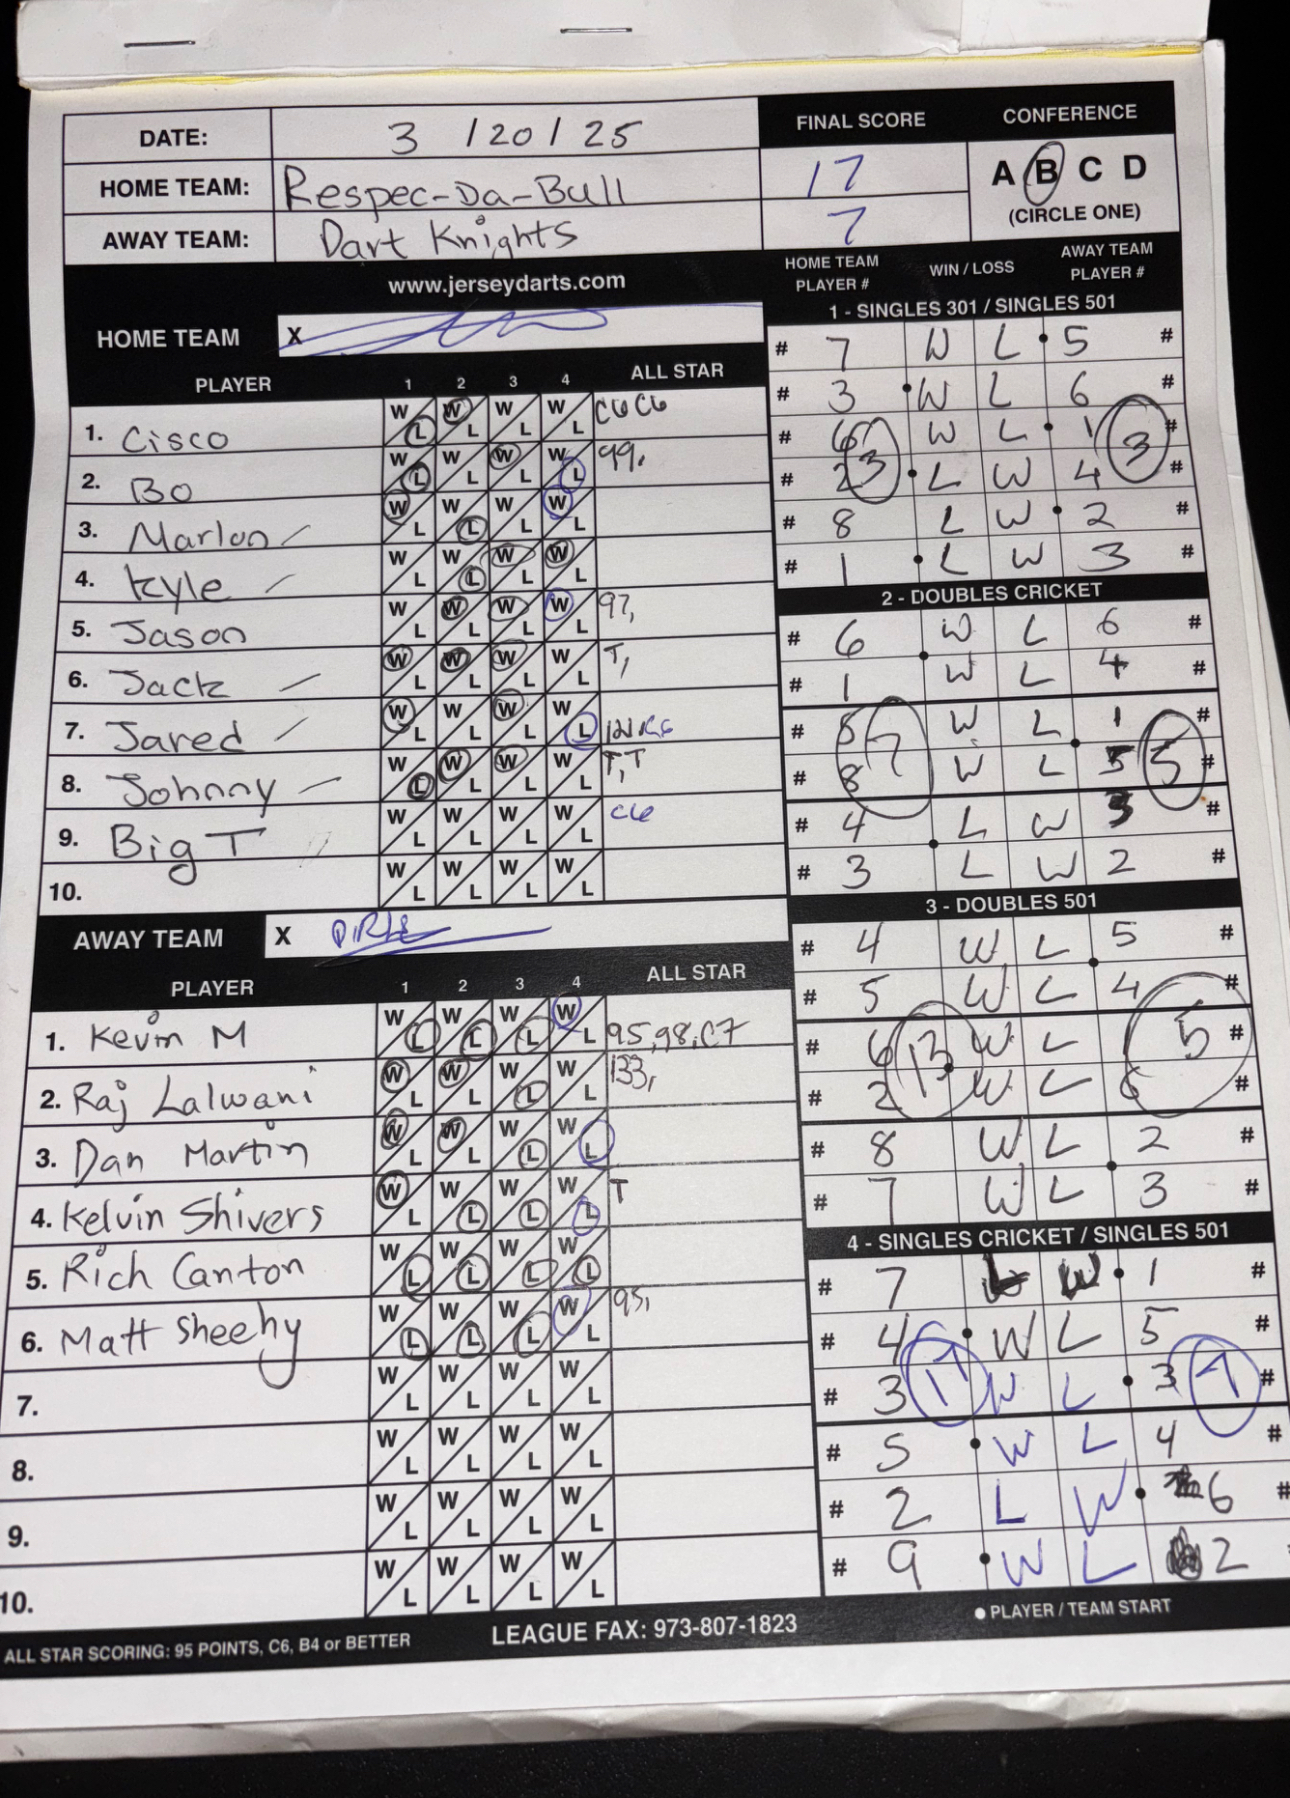 DATE: 3 / 20 / 25 FINAL SCORE CONFERENCE
HOME TEAM: Respec-Da-Bull 17 A B C D
AWAY TEAM: Dart Knights 7 (CIRCLE ONE)
www.jerseydarts.com
HOME TEAM X
PLAYER 1 2 3 4 ALL STAR
1. Cisco W L W L W L W L C6 C6
2. Bo W L W L W L W L 99,
3. Marlon W L W L W L W L
4. Kyle W L W L W L W L
5. Jason W L W L W L W L 97,
6. Jack W L W L W L W L T,
7. Jared W L W L W L W L
8. Johnny W L W L W L W L T,T
9. Big T W L W L W L W L C6
10. W L W L W L W L
AWAY TEAM X
PLAYER 1 2 3 4 ALL STAR
1. Kevin M W L W L W L W L 95,98,C7
2. Raj Lalwani W L W L W L W L 133,
3. Dan Martin W L W L W L W L
4. Kelvin Shivers W L W L W L W L T
5. Rich Canton W L W L W L W L
6. Matt Sheehy W L W L W L W L 95,
7. W L W L W L W L
8. W L W L W L W L
9. W L W L W L W L
10. W L W L W L W L
ALL STAR SCORING: 95 POINTS, C6, B4 or BETTER
LEAGUE FAX: 973-807-1823
HOME TEAM PLAYER # WIN / LOSS AWAY TEAM PLAYER #
1 - SINGLES 301 / SINGLES 501
# 7 W L 5 #
# 3 W L 6 #
# 6 W L 1 #
# 2 L W 4 #
3 3
# 8 L W 2 #
# 1 L W 3 #
2 - DOUBLES CRICKET
# 6 W L 6 #
# 1 W L 4 #
# 5 W L 1 #
# 8 W L 5 #
7 5
# 4 L W 3 #
# 3 L W 2 #
3 - DOUBLES 501
# 4 W L 5 #
# 5 W L 4 #
# 6 W L #
# 2 W L 6 #
13 5
# 8 W L 2 #
# 7 W L 3 #
4 - SINGLES CRICKET / SINGLES 501
# 7 L W 1 #
# 4 W L 5 #
# 3 W L 3 #
17 7
# 5 W L 4 #
# 2 L W 6 #
# 9 W L 2
PLAYER / TEAM START